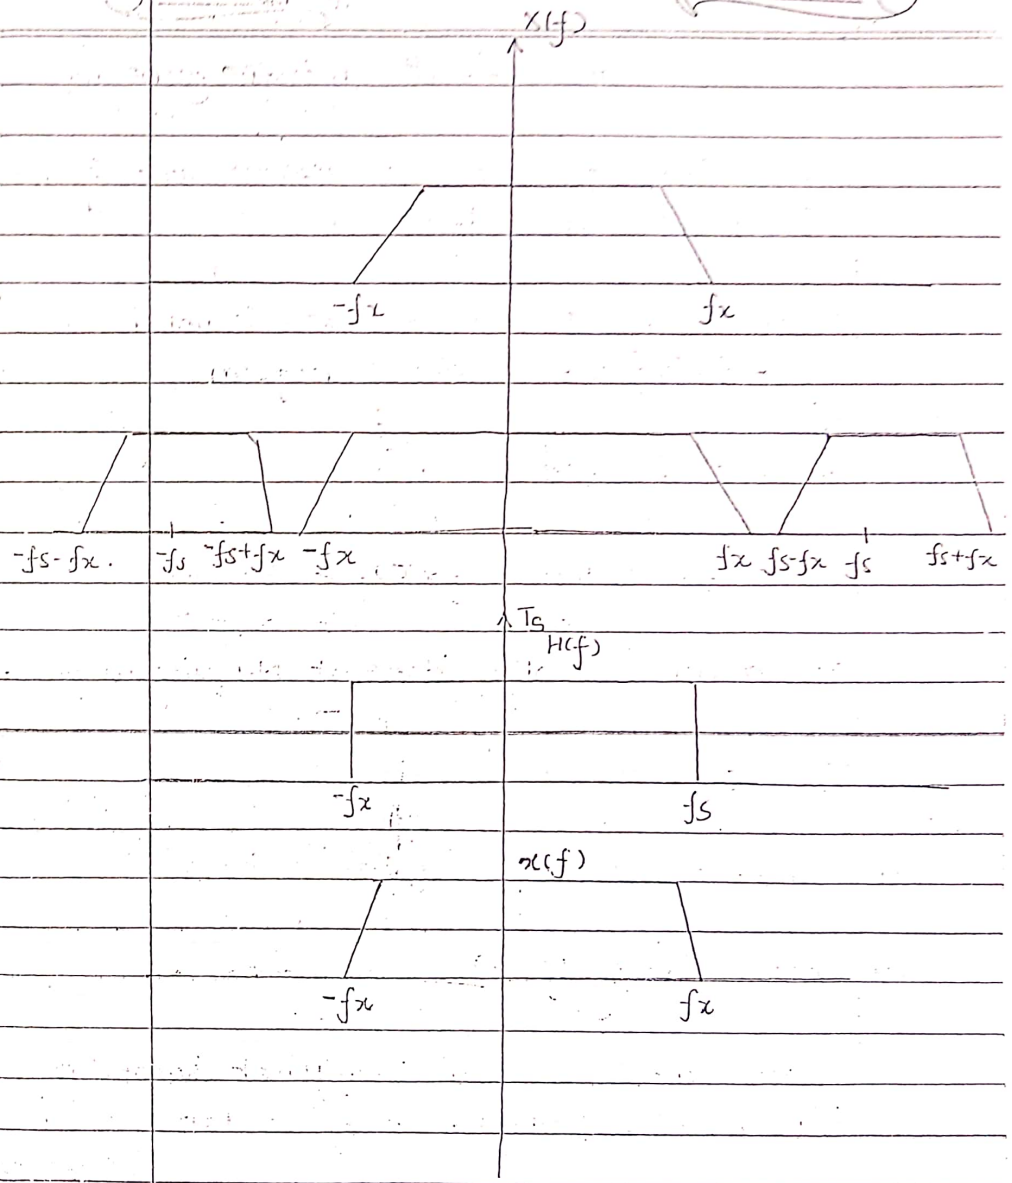 X(f)
-fx fx
-fs-fx. -fs -fs+fx -fx fx fs-fx fs fs+fx
Ts
H(f)
-fx fs
x(f)
-fx fx